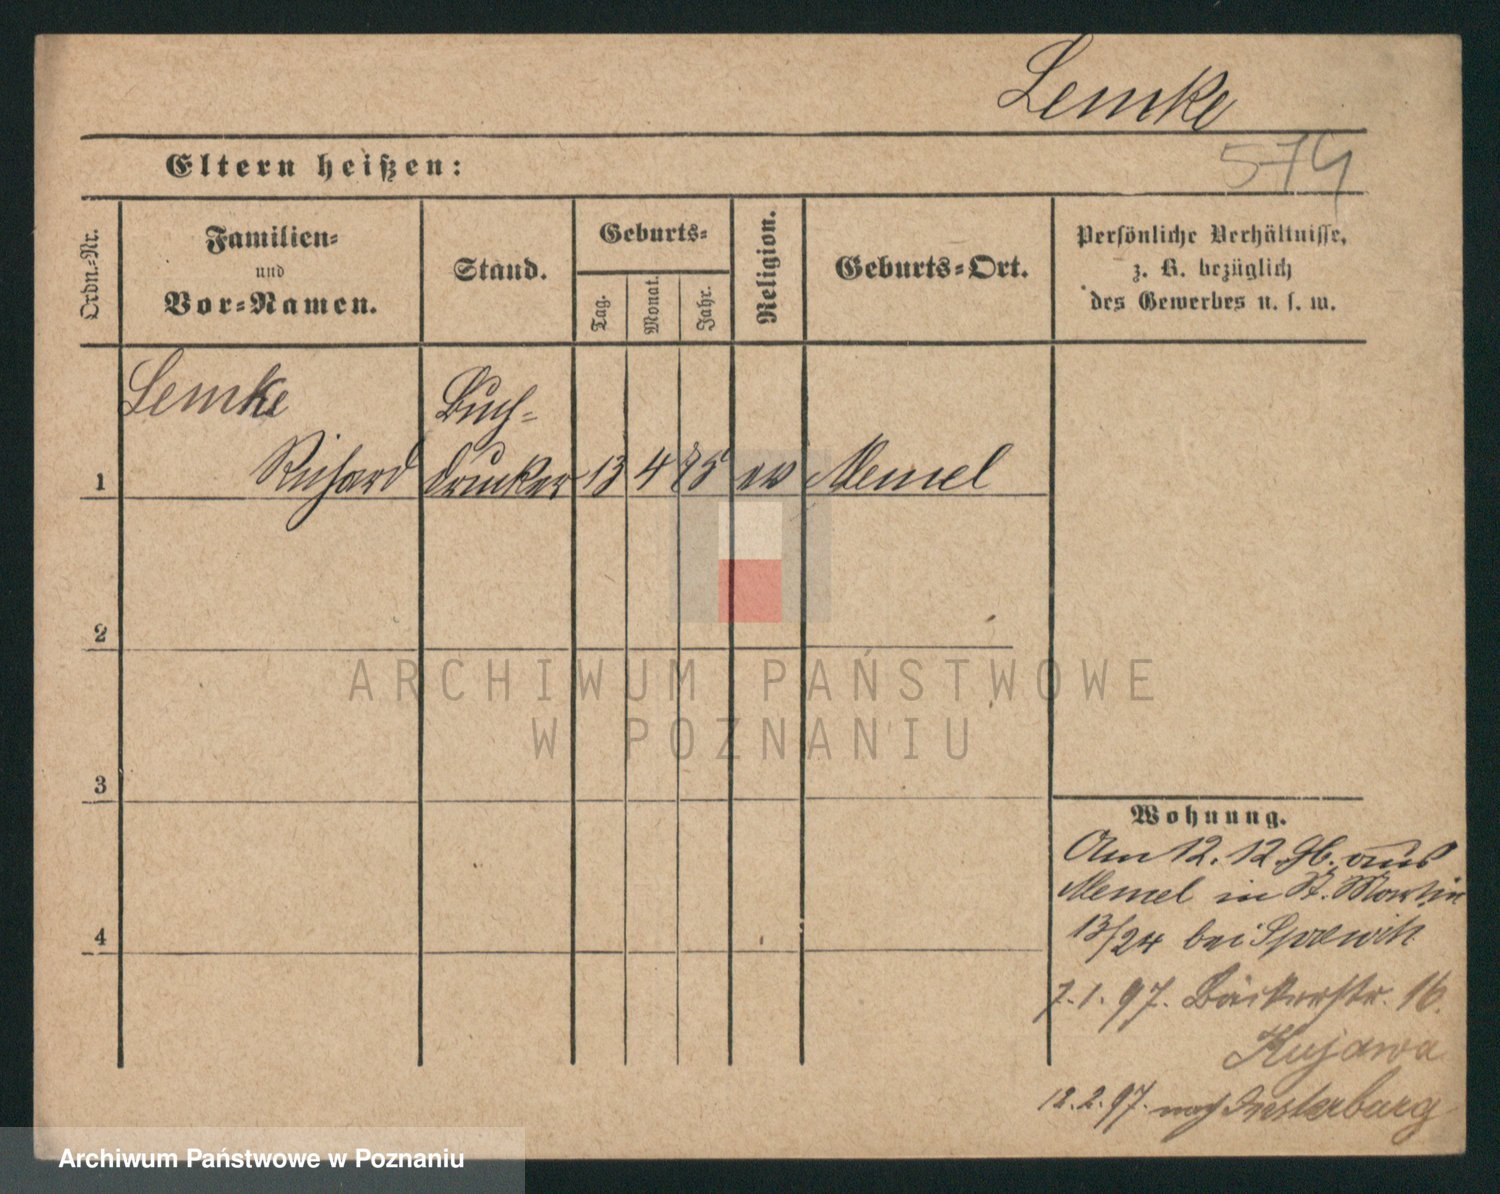 Lemke
574
Eltern heißen:
Ordn.-Nr.
Familien-
und
Vor-Namen.
Stand.
Geburts-
Tag.
Monat.
Jahr.
Religion.
Geburts-Ort.
Persönliche Verhältnisse,
z. B. bezüglich
des Gewerbes u. s. w.
Lemke
Richard
Buch-
drucker
1
13
4
75
ev
Memel
2
3
4
ARCHIWUM PAŃSTWOWE
W POZNANIU
Wohnung.
Am 12. 12. 96. aus
Memel in St. Martin
13/24 bei
7. 1. 97. Bäckerstr. 16.
Kujawa
12. 2. 97. nach Insterburg
Archiwum Państwowe w Poznaniu